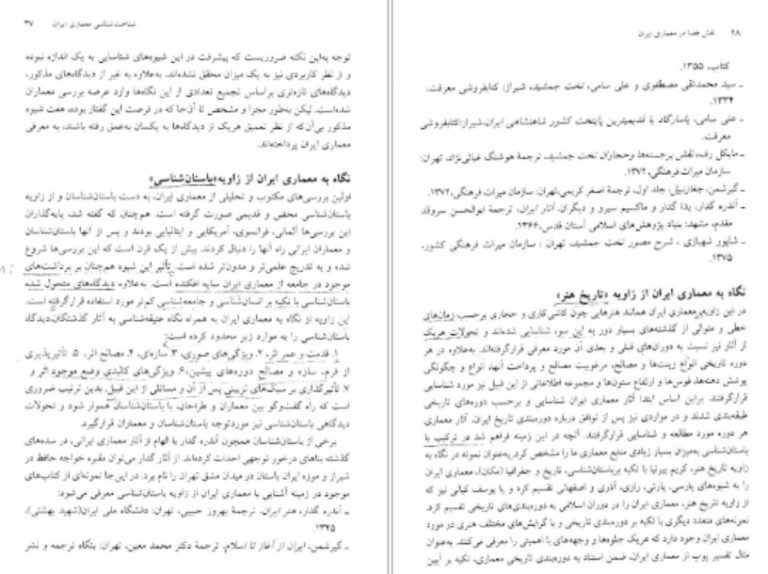 شناخت‌شناسی معماری ایران   ۳۷
توجه به‌این نکته ضروریست که پیشرفت در این شیوه‌های شناسایی به یک اندازه نبوده
و از نظر کاربردی نیز به یک میزان محقق نشده‌اند. به‌علاوه به غیر از دیدگاه‌های مذکور،
دیدگاه‌های تازه‌تری براساس تجمیع تعدادی از این نگاه‌ها وارد عرصه بررسی معماران
شده‌است. لیکن به‌طور مجزا و مشخص تا آن‌جا که در فرصت این گفتار بوده، هفت شیوه
مذکور بی‌آن‌که از نظر تعمیق هریک از دیدگاه‌ها به یکسان به‌عمق رفته باشند، به معرفی
معماری ایران پرداخته‌اند.
نگاه به معماری ایران از زاویه «باستان‌شناسی»
اولین بررسی‌های مکتوب و تحلیلی از معماری ایران، به دست باستان‌شناسان و از زاویه
باستان‌شناسی محض و قدیمی صورت گرفته است. هم‌چنان که گفته شد، پایه‌گذاران
این بررسی‌ها آلمانی، فرانسوی، آمریکایی و ایتالیایی بودند و پس از آنها باستان‌شناسان
و معماران ایرانی راه آنها را دنبال کردند. بیش از یک قرن است که این بررسی‌ها شروع
شده و به تدریج علمی‌تر و مدون‌تر شده است. تأثیر این شیوه هم‌چنان بر برداشت‌های
موجود در جامعه از معماری ایران سایه افکنده است. به‌علاوه دیدگاه‌های متحول شده
باستان‌شناسی با تکیه بر انسان‌شناسی و جامعه‌شناسی کم‌تر مورد استفاده قرارگرفته است.
این زاویه از نگاه به معماری ایران به همراه نگاه عتیقه‌شناسی به آثار گذشتگان، دیدگاه
باستان‌شناسی را به موارد زیر محدود کرده است:
۱. قدمت و عمر اثر، ۲. ویژگی‌های صوری، ۳. سازه‌ای، ۴. مصالح اثر، ۵. تأثیرپذیری
از فرم، سازه و مصالح دوره‌های پیشین، ۶. ویژگی‌های کالبدی وضع موجود اثر و
۷. تأثیرگذاری بر سبک‌های تزیینی پس از آن و مسائلی از این قبیل. بدین ترتیب ضروری
است که راه گفت‌وگو بین معماران و طراحان، با باستان‌شناسان هموار شود و تحولات
دیدگاهی باستان‌شناسی نیز موردتوجه باستان‌شناسان و معماران قرارگیرد.
برخی از باستان‌شناسان همچون آندره گدار با الهام از آثار معماری ایرانی، در سده‌های
گذشته بناهای درخور توجهی احداث کرده‌اند. از آثار گدار می‌توان مقبره خواجه حافظ در
شیراز و موزه ایران باستان در میدان مشق تهران را نام برد. در این‌جا نمونه‌ای از کتاب‌های
موجود در زمینه آشنایی با معماری ایران از زاویه باستان‌شناسی معرفی می‌شود:
ـ آندره گدار، هنر ایران، ترجمه بهروز حبیبی، تهران: دانشگاه ملی ایران (شهید بهشتی)،
۱۳۴۵.
ـ گیرشمن، ایران از آغاز تا اسلام، ترجمه دکتر محمد معین، تهران: بنگاه ترجمه و نشر
۳۸   نقش فضا در معماری ایران
کتاب، ۱۳۵۵.
ـ سید محمدتقی مصطفوی و علی سامی، تخت جمشید، شیراز: کتابفروشی معرفت،
۱۳۳۴.
ـ علی سامی، پاسارگاد یا قدیمترین پایتخت کشور شاهنشاهی ایران، شیراز: کتابفروشی
معرفت.
ـ مایکل رف، نقش برجسته‌ها و حجاران تخت جمشید، ترجمهٔ هوشنگ غیاثی‌نژاد، تهران:
سازمان میراث فرهنگی، ۱۳۷۳.
ـ گیرشمن، چغازنبیل، جلد اول، ترجمهٔ اصغر کریمی، تهران: سازمان میراث فرهنگی، ۱۳۷۳.
ـ آندره گدار، یدا گدار و ماکسیم سیرو و دیگران، آثار ایران، ترجمهٔ ابوالحسن سروقد
مقدم، مشهد: بنیاد پژوهش‌های اسلامی آستان قدس، ۱۳۶۶.
ـ شاپور شهبازی، شرح مصور تخت جمشید، تهران: سازمان میراث فرهنگی کشور،
۱۳۷۵
نگاه به معماری ایران از زاویه «تاریخ هنر»
در این زاویه، معماری ایران همانند هنرهایی چون کاشی‌کاری و حجاری برحسب زمان‌های
خطی و متوالی از گذشته‌های بسیار دور به این سو، شناسایی شده‌اند و تحولات هریک
از آثار نیز نسبت به دوران‌های قبلی و بعدی آن مورد معرفی قرارگرفته‌اند. به‌علاوه در هر
دوره تاریخی انواع تزیینات و مصالح، مرغوبیت مصالح و پرداخت آنها، انواع و چگونگی
پوشش دهنه‌ها، قوس‌ها و ارتفاع ستون‌ها و مجموعه اطلاعاتی از این قبیل نیز مورد شناسایی
قرارگرفتند. براین اساس ابتدا آثار معماری ایران شناسایی و برحسب دوره‌های تاریخی
طبقه‌بندی شدند و در مواردی نیز پس از توافق درباره دوره‌بندی تاریخ ایران، آثار معماری
هر دوره مورد مطالعه و شناسایی قرارگرفتند. آنچه در این زمینه فراهم شد در ترکیب با
باستان‌شناسی به‌میزان بسیار زیادی منابع معماری ما را مشخص کرد. به‌عنوان نمونه در نگاه به
زاویه تاریخ هنر، کریم پیرنیا با تکیه بر باستان‌شناسی، تاریخ و جغرافیا (مکان)، معماری ایران
را به شیوه‌های پارسی، پارتی، رازی، آذری و اصفهانی تقسیم کرد و یا یوسف کیانی که نیز
از زاویه تاریخ هنر، معماری ایران را در دوران اسلامی به دوره‌بندی‌های تاریخی تقسیم کرد.
نمونه‌های متعدد دیگری با تکیه بر دوره‌بندی تاریخی و با گرایش‌های مختلف هنری در مورد
معماری ایران وجود دارد که هریک جلوه‌ها و وجهه‌های با اهمیتی را معرفی می‌کنند. به‌عنوان
مثال تفسیر پوپ از معماری ایران، ضمن استناد به دوره‌بندی تاریخی معماری، تکیه بر آیین